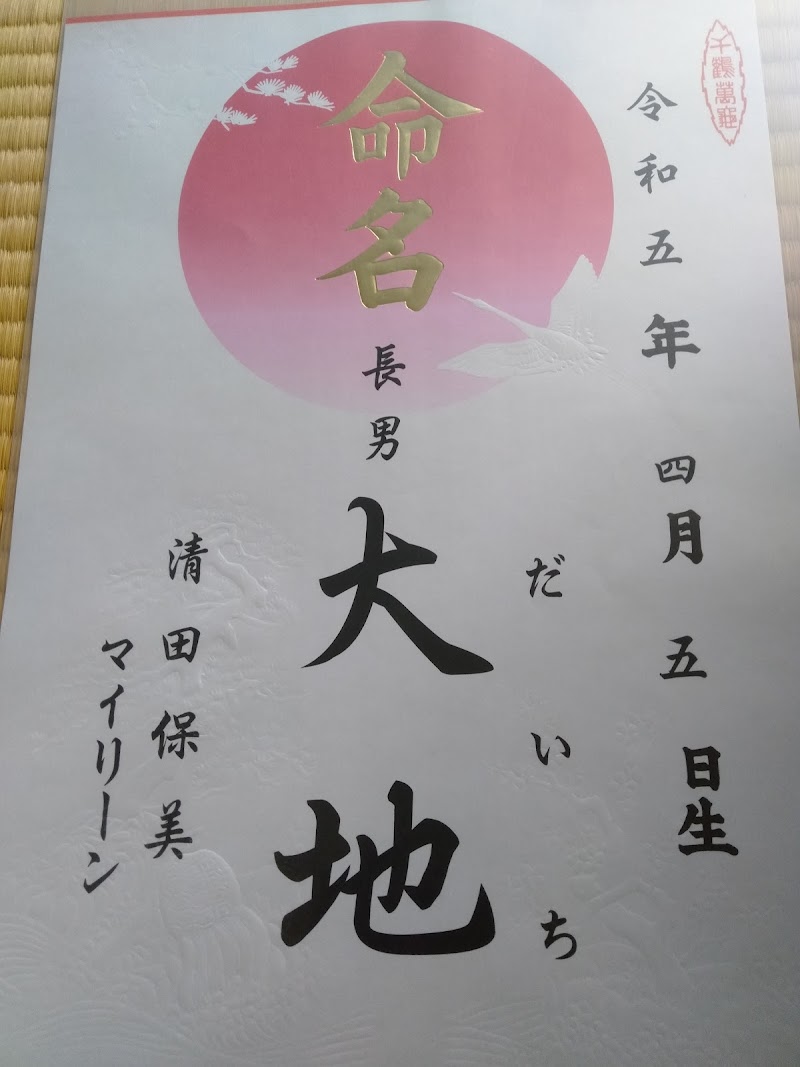 千鶴萬亀
令和五年 四月 五日生
命名
長男 大地
だいち
清田保美
マイリーン